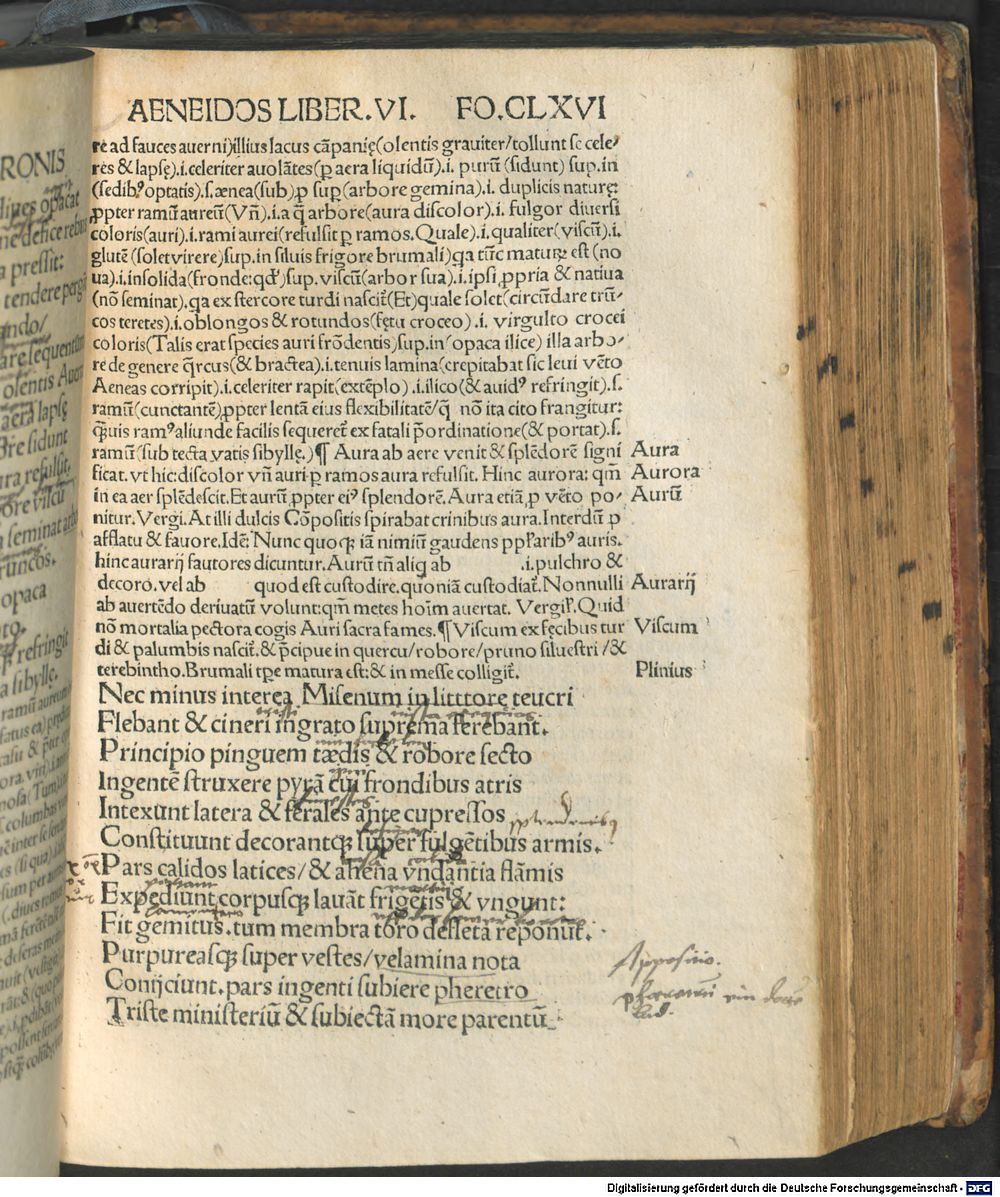 AENEIDOS LIBER.VI. FO.CLXVI
re ad fauces auerni)illius lacus cãpanię(olentis grauiter/tollunt se cele-
res & lapsę).i.celeriter auolãtes(ꝑ aera liquidũ).i. purũ (sidunt) sup.in
(sedibꝰ optatis).s.ænea(sub)ꝓ sup(arbore gemina).i. duplicis naturę:
ꝓpter ramũ aureũ(Vñ).i.a q̃ arbore(aura discolor).i. fulgor diuersi
coloris(auri).i.rami aurei(refulsit ꝑ ramos. Quale).i.qualiter(viscũ).i.
glutẽ (solet virere)sup.in siluis frigore brumali)qa tũc maturę est (no
ua).i.insolida(fronde:qđ)sup.viscũ(arbor sua).i.ipsi ꝓpria & natiua
(nõ seminat).qa ex stercore turdi nascit̃(Et)quale solet(circũdare trũ-
cos teretes).i.oblongos & rotundos(fętu croceo).i. virgulto crocei
coloris(Talis erat species auri frõdentis)sup.in(opaca ilice) illa arbo-
re de genere q̃rcus(& bractea).i.tenuis lamina(crepitabat sic leui vẽto
Aeneas corripit).i.celeriter rapit(extẽplo).i.ilico(& auidꝰ refringit).s.
ramũ(cunctantẽ)ꝓpter lentã eius flexibilitatẽ/q̃ nõ ita cito frangitur:
q̃uis ramꝰaliunde facilis sequeret̃ ex fatali p̃ordinatione(& portat).s.
ramũ(sub tecta vatis sibyllę.)¶ Aura ab aere venit & splẽdorẽ signi
ficat. vt hic:discolor vñ auri ꝑ ramos aura refulsit. Hinc aurora: qm̃
in ea aer splẽdescit. Et aurũ ꝓpter eiꝰ splendorẽ. Aura etiã ꝓ vẽto po-
nitur. Vergi. At illi dulcis Cõpositis spirabat crinibus aura. Interdũ ꝓ
afflatu & fauore. Idẽ: Nunc quoqꝫ iã nimiũ gaudens ppl̃aribꝰ auris.
hinc aurarij fautores dicuntur. Aurũ tñ aliq ab .i.pulchro &
decoro. vel ab quod est custodire. quoniã custodiat̃. Nonnulli
ab auertẽdo deriuatũ volunt:qm̃ metes hoĩm auertat. Vergil̃. Quid
nõ mortalia pectora cogis Auri sacra fames.¶ Viscum ex fęcibus tur
di & palumbis nascit̃. & p̃cipue in quercu/robore/pruno siluestri /&
terebintho. Brumali tp̃e matura est:& in messe colligit̃.
Aura
Aurora
Aurũ
Aurarij
Viscum
Plinius
Nec minus interea Misenum in litttore teucri
Flebant & cineri ingrato suprema ferebant.
Principio pinguem tædis & robore secto
Ingentẽ struxere pyrã cui frondibus atris
Intexunt latera & ferales ante cupressos
Constituunt decorantqꝫ super fulgẽtibus armis.
Pars calidos latices/& ahena vndantia flãmis
Expediunt corpusqꝫ lauãt frigẽtis & vngunt:
Fit gemitus. tum membra toro defleta reponũt.
Purpureasqꝫ super vestes/velamina nota
Conijciunt. pars ingenti subiere pheretro
Triste ministeriũ & subiectã more parentũ
Appositio.
Digitalisierung gefördert durch die Deutsche Forschungsgemeinschaft - DFG